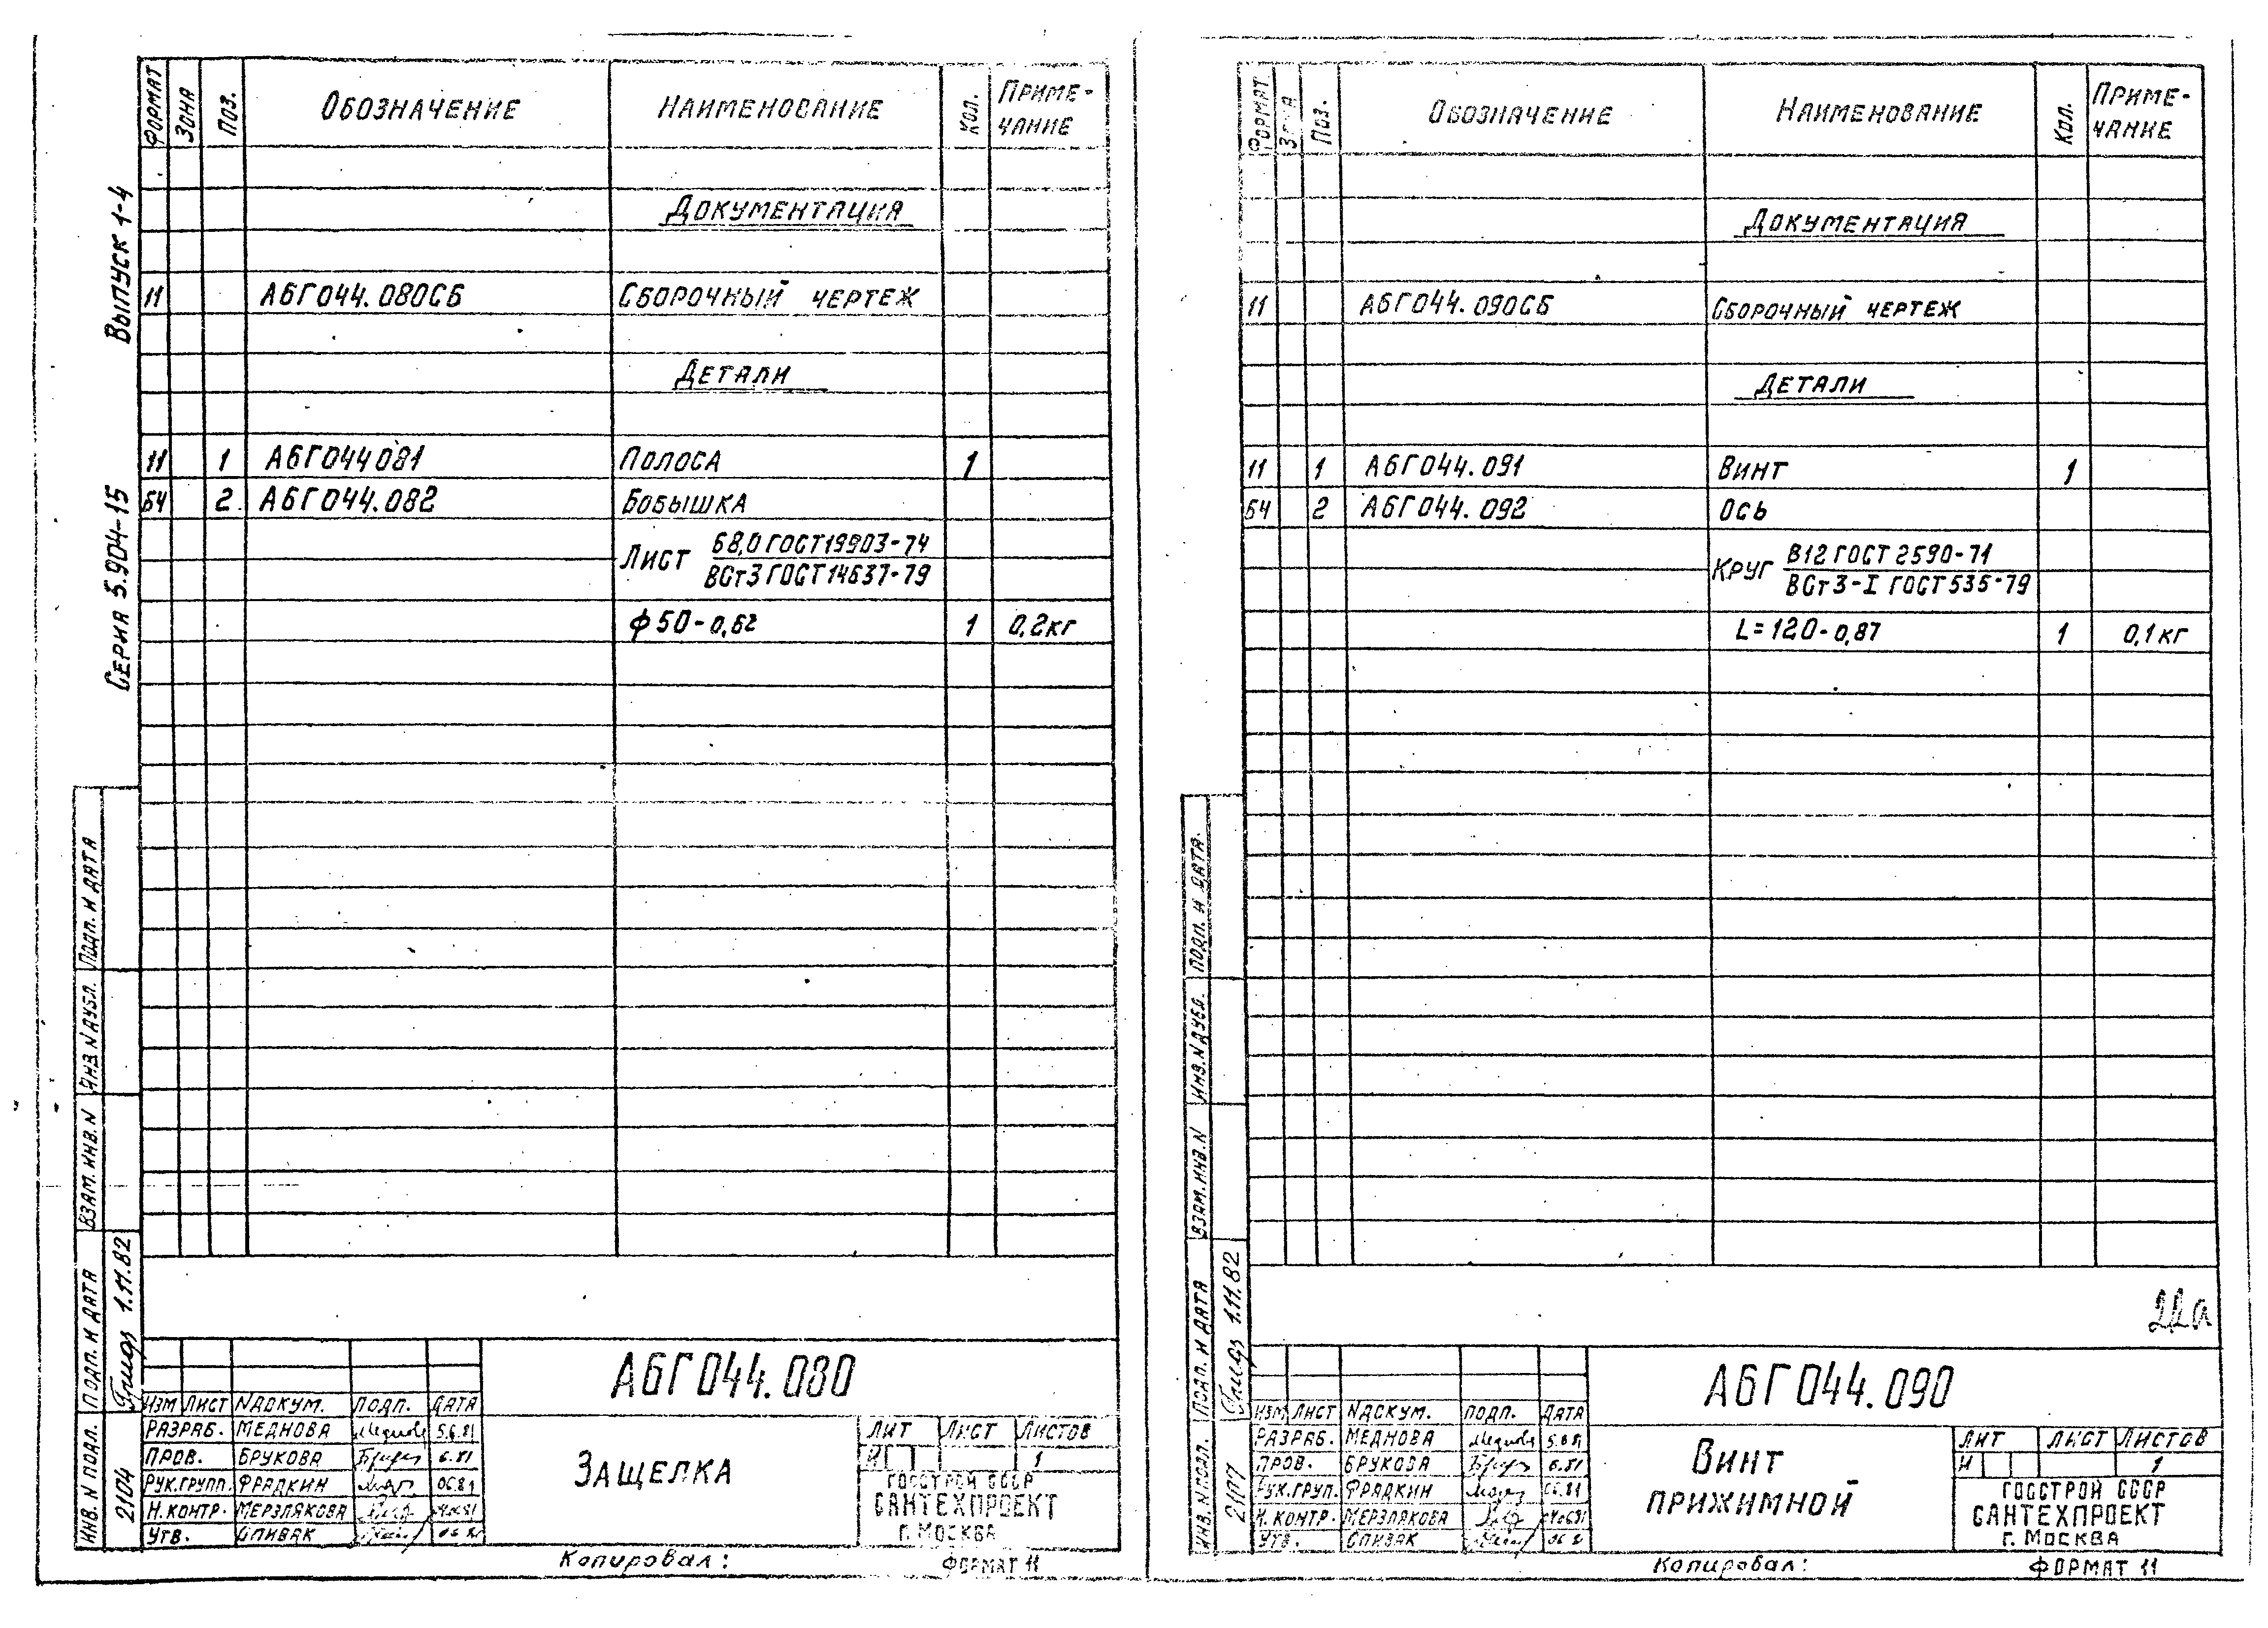 Выпуск 1-4
Серия 5.904-15
Формат Зона Поз. Обозначение Наименование Кол. Приме-
чание
Документация
11 А6Г044.080СБ Сборочный чертеж
Детали
11 1 А6Г044 081 Полоса 1
БЧ 2 А6Г044.082 Бобышка
Лист Б8,0 ГОСТ 19903-74
ВСт3 ГОСТ 14637-79
ф50-0,62 1 0,2кг
Подп. и дата
Инв N дубл.
Взам. инв. N
Подп. и дата 1.11.82
Инв. N подл. 2104
А6Г044.080
Изм Лист N докум. Подп. Дата
Разраб. Меднова 5.6.81
Пров. Брукова 6.81
Рук.групп. Фрадкин 06.81
Н.контр. Мерзлякова
Утв. Спивак
Защелка
Лит Лист Листов
И 1
Госстрой СССР
САНТЕХПРОЕКТ
г. Москва
Копировал: Формат 11
Формат Зона Поз. Обозначение Наименование Кол. Приме-
чание
Документация
11 А6Г044.090СБ Сборочный чертеж
Детали
11 1 А6Г044.091 Винт 1
БЧ 2 А6Г044.092 Ось
Круг В12 ГОСТ 2590-71
ВСт3-I ГОСТ 535-79
L=120-0,87 1 0,1кг
Подп. и дата.
Инв.N дубл.
Взам.инв.N
Подп. и дата 1.11.82
Инв. N подл.
22а
А6Г044.090
Изм Лист N докум. Подп. Дата
Разраб. Меднова 5.6.81
Пров. Брукова 6.81
Рук.груп. Фрадкин 06.81
Н.контр. Мерзлякова
Утв. Спивак
Винт
прижимной
Лит Лист Листов
И 1
Госстрой СССР
САНТЕХПРОЕКТ
г. Москва
Копировал: Формат 11